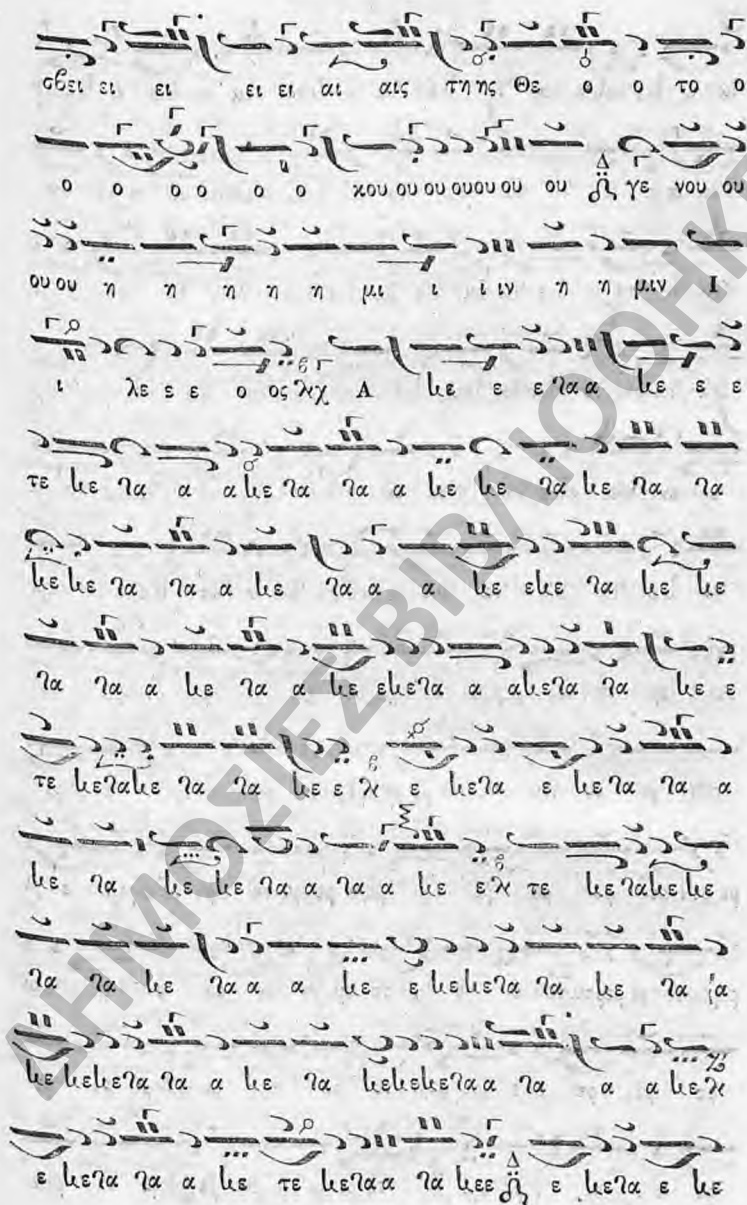 σβει ει ει ει ει αι αις τη ης Θε ο ο το ο
ο ο ο ο ο ο κου ου ου ου ου ου ου γε νου ου
ου ου η η η η η μι ι ι ιν η η μιν Ι
ι λε ε ε ο ος Α λε ε ε τα α λε ε ε
τε λε τα α α λε τα τα α λε λε τα λε τα τα
λε λε τα τα α λε τα α α λε ε λε τα λε λε
τα τα α λε τα α λε ε λε τα α α λε τα τα λε ε
τε λε τα λε τα τα λε ε ε λε τα ε λε τα τα α
λε τα λε λε τα α τα α λε ε τε λε τα λε λε
τα τα λε τα α α λε ε λε λε τα τα λε τα α
λε λε λε τα τα α λε τα λε λε λε τα α τα α α λε
ε λε τα τα α λε τε λε τα α τα λε ε ε λε τα ε λε
ΔΗΜΟΣΙΕΣ ΒΙΒΛΙΟΘΗΚΕ